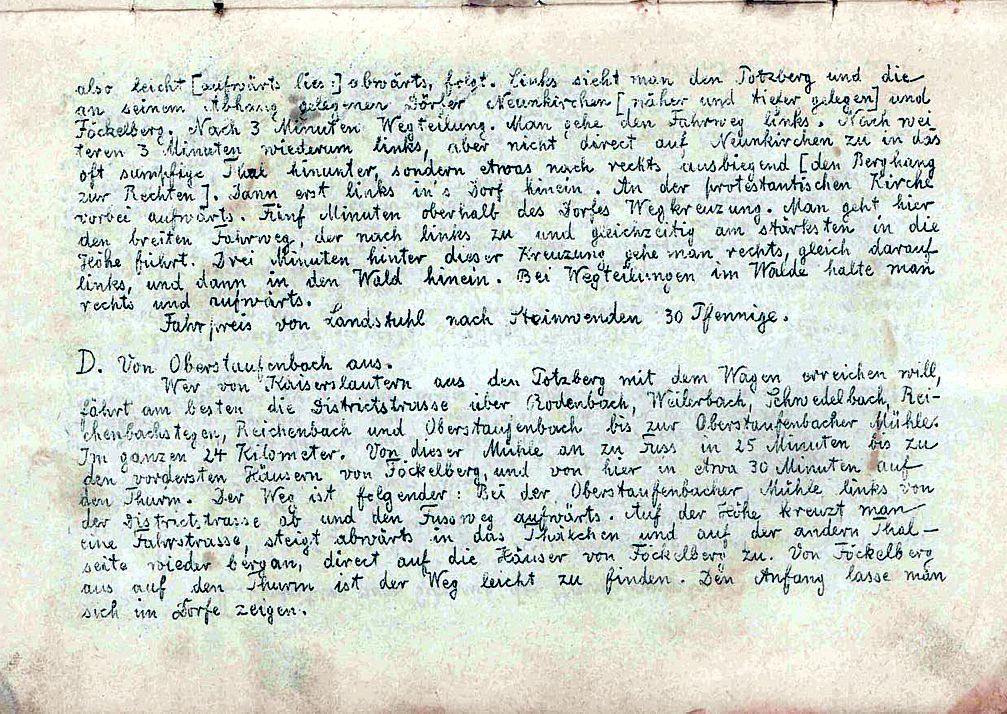 also leicht [aufwärts lies:] abwärts, folgt. Links sieht man den Potzberg und die
an seinem Abhang gelegenen Dörfer Neunkirchen [näher und tiefer gelegen] und
Föckelberg. Nach 3 Minuten Wegteilung. Man gehe den Fahrweg links. Nach wei
teren 3 Minuten wiederum links, aber nicht direct auf Neunkirchen zu in das
oft sumpfige Thal hinunter, sondern etwas nach rechts ausbiegend [den Berghang
zur Rechten]. Dann erst links in's Dorf hinein. An der protestantischen Kirche
vorbei aufwärts. Fünf Minuten oberhalb des Dorfes Wegkreuzung. Man geht hier
den breiten Fahrweg, der nach links zu und gleichzeitig am stärksten in die
Höhe führt. Drei Minuten hinter dieser Kreuzung gehe man rechts, gleich darauf
links, und dann in den Wald hinein. Bei Wegteilungen im Walde halte man
rechts und aufwärts.
Fahrpreis von Landstuhl nach Steinwenden 30 Pfennige.
D. Von Oberstaufenbach aus.
Wer von Kaiserslautern aus den Potzberg mit dem Wagen erreichen will,
fährt am besten die Districtstrasse über Rodenbach, Weilerbach, Schwedelbach, Rei-
chenbachstegen, Reichenbach und Oberstaufenbach bis zur Oberstaufenbacher Mühle.
Im ganzen 24 Kilometer. Von dieser Mühle an zu Fuss in 25 Minuten bis zu
den vordersten Häusern von Föckelberg, und von hier in etwa 30 Minuten auf
den Thurm. Der Weg ist folgender: Bei der Oberstaufenbacher Mühle links von
der Districtstrasse ab und den Fussweg aufwärts. Auf der Höhe kreuzt man
eine Fahrstrasse, steigt abwärts in das Thälchen und auf der andern Thal-
seite wieder bergan, direct auf die Häuser von Föckelberg zu. Von Föckelberg
aus auf den Thurm ist der Weg leicht zu finden. Den Anfang lasse man
sich im Dorfe zeigen.